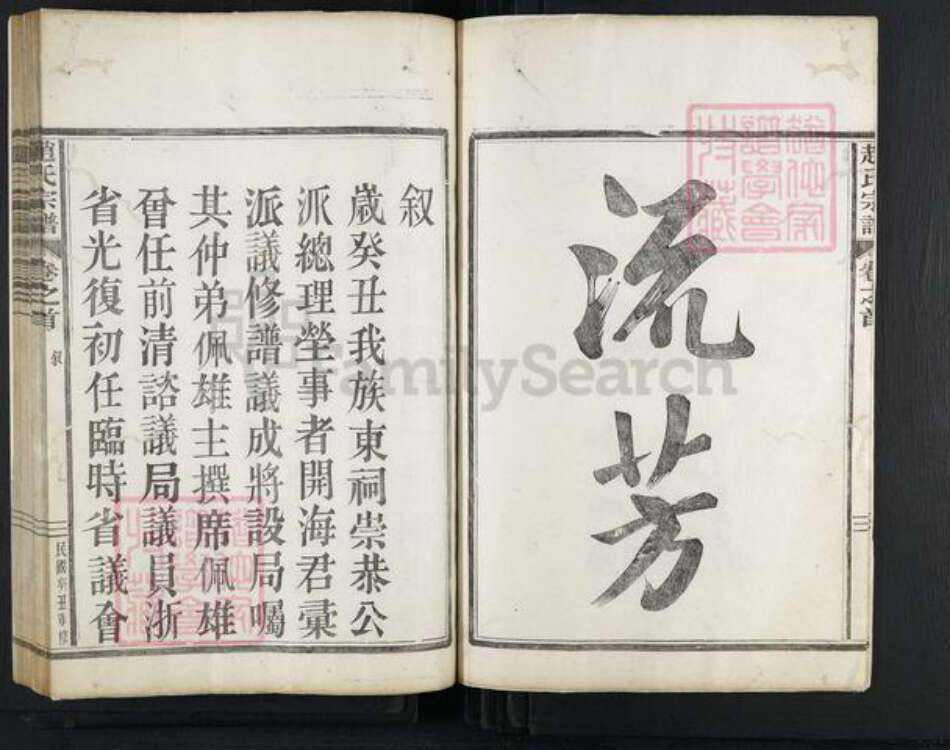 趙氏宗譜
卷之首
流芳
叙
歲癸丑我族東祠崇恭公
派總理塋事者開海君彙
派議修譜議成將設局囑
其仲弟佩雄主撰席佩雄
曾任前清諮議局議員浙
省光復初任臨時省議會
趙氏宗譜
卷之首
叙
FamilySearch